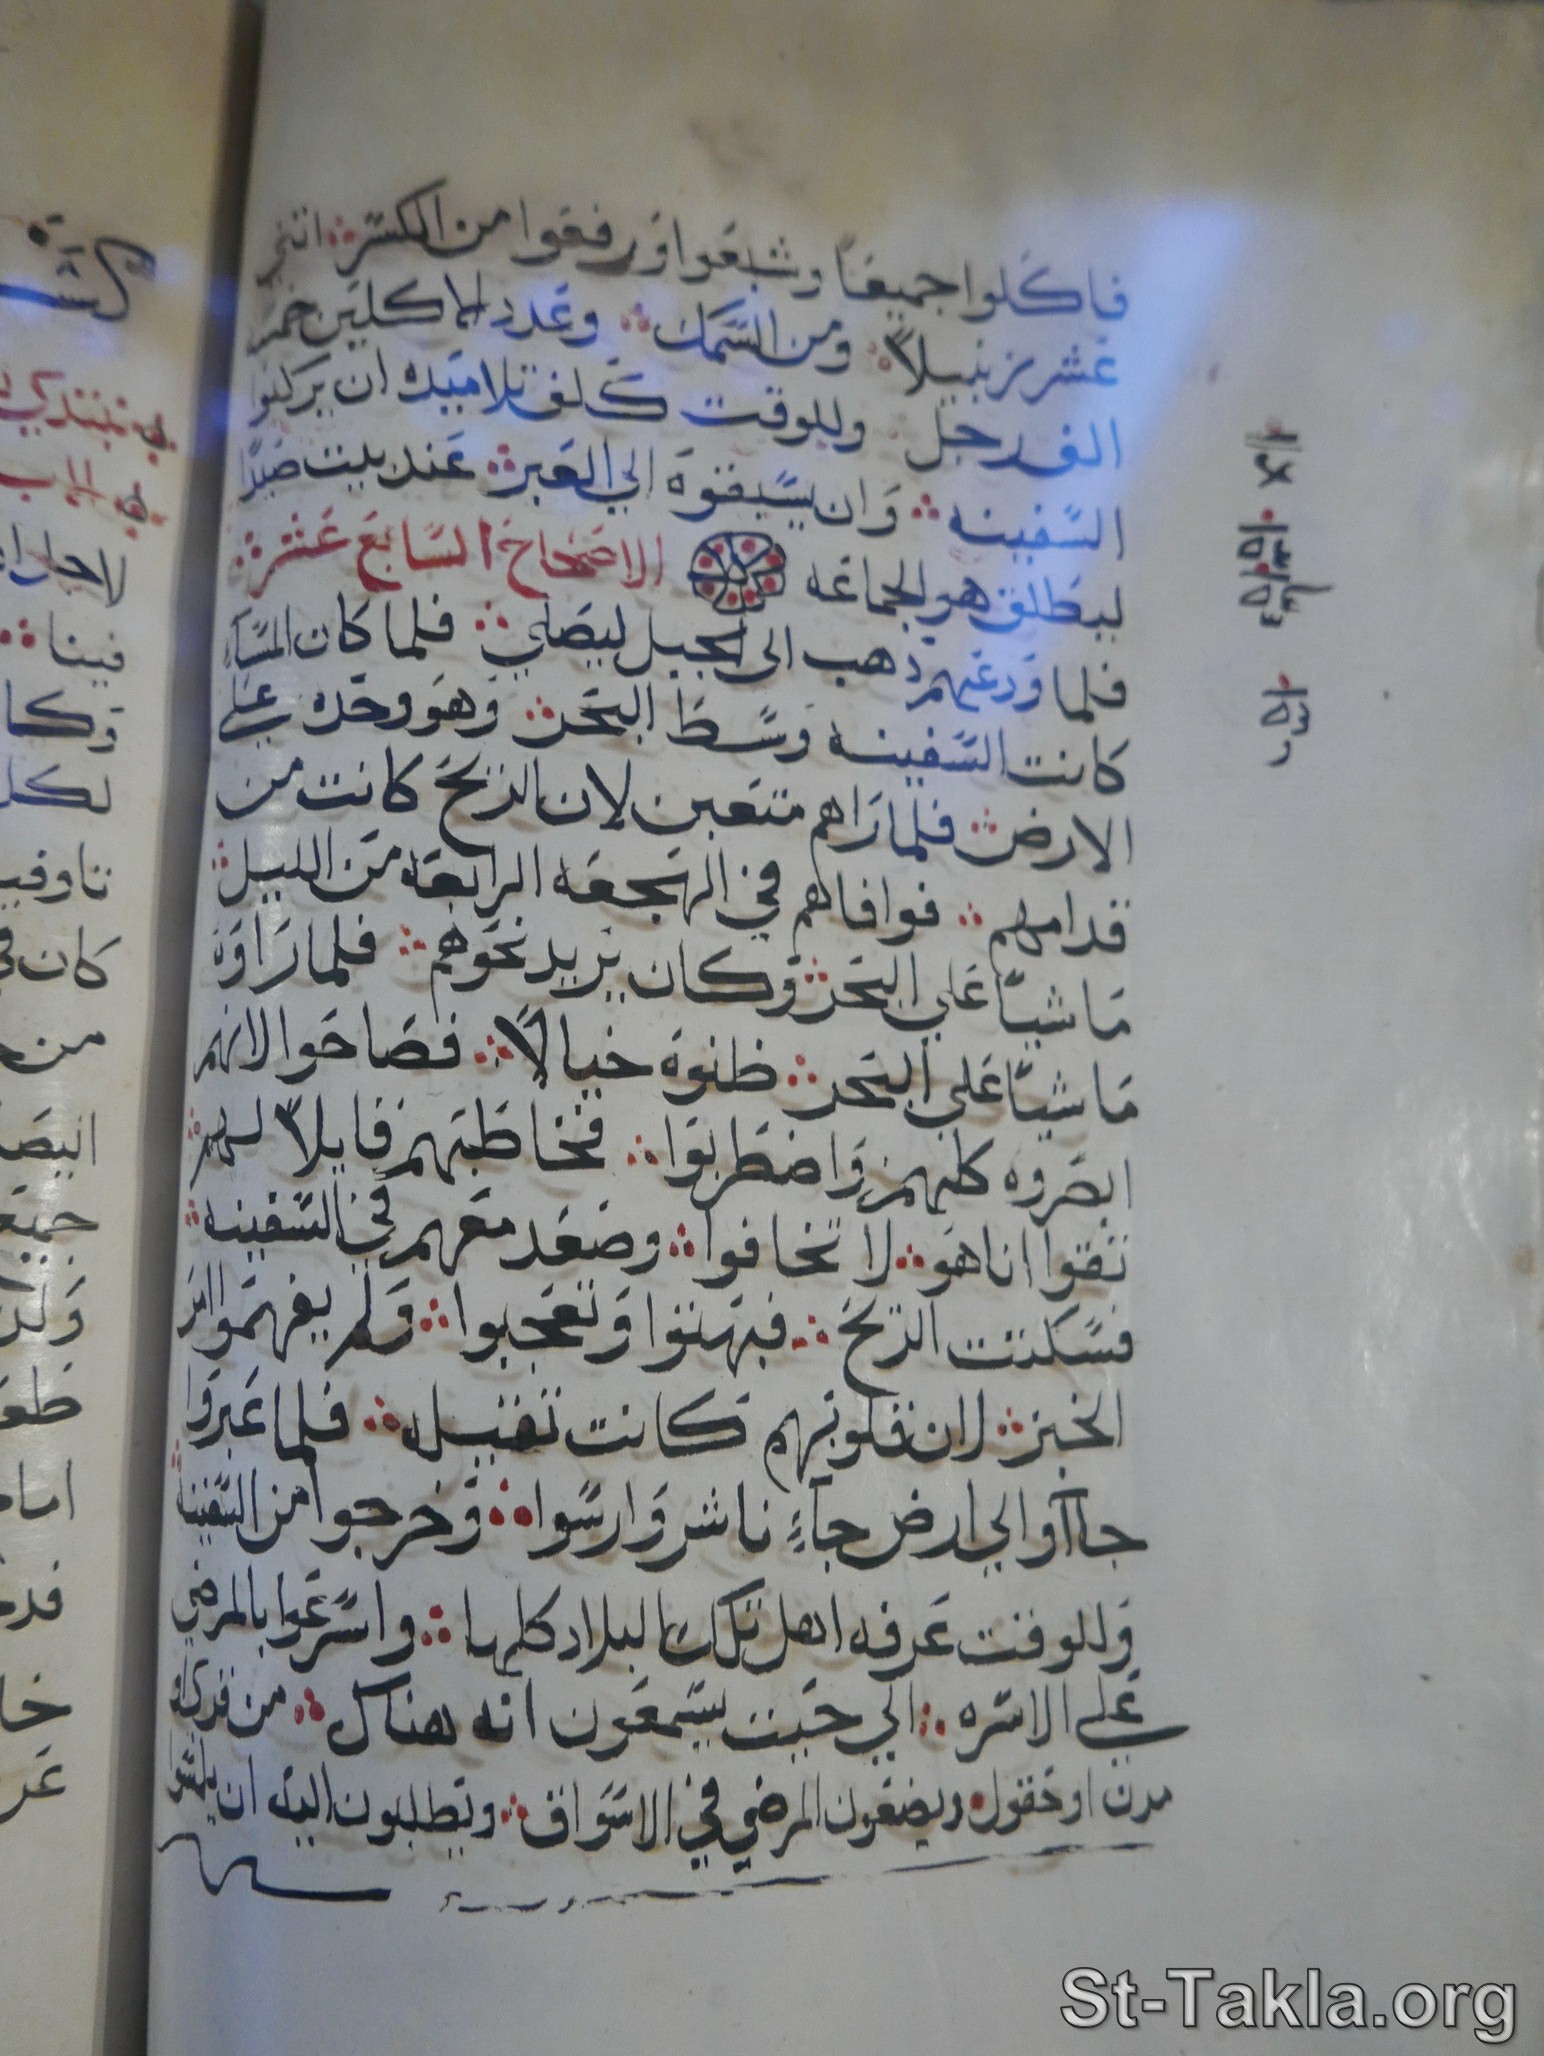 فاكلوا جميعًا وشبعوا ورفعوا من الكسر اثني
عشر زنبيلاً ومن السمك وعدد الاكلين خمسة
الف رجل وللوقت كلف تلاميده ان يركبوا
السفينه وان يسبقوه الي العبر عند بيت صيدا
ليطلق هو الجماعه الاصحاح السابع عشر
فلما ودعهم ذهب الى الجبل ليصلي فلما كان المسآء
كانت السفينه وسط البحر وهو وحده علي
الارض فلما راهم متعبين لان الريح كانت من
قدامهم فوافاهم في الهجعه الرابعه من الليل
ماشيًا علي البحر وكان يريد نحوهم فلما راوه
ماشيًا علي البحر ظنوه خيالاً فصاحوا لانهم
ابصروه كلهم واضطربوا فخاطبهم قايلاً لهم
ثقوا انا هو لا تخافوا وصعد معهم في السفينه
فسكنت الريح فبهتوا وتعجبوا ولم يفهموا امر
الخبز لان قلوبهم كانت ثقيله فلما عبروا
جآاوا الي ارض جآء ناشر وارسوا وخرجوا من السفينه
وللوقت عرفه اهل تلك البلاد كلها واسرعوا بالمرضي
علي الاسره الي حيت يسمعون انه هناك من قري او
مدن او حقول ويضعون المرضي في الاسواق ويطلبون اليه ان يلمسوا
كان
من
خا
St-Takla.org